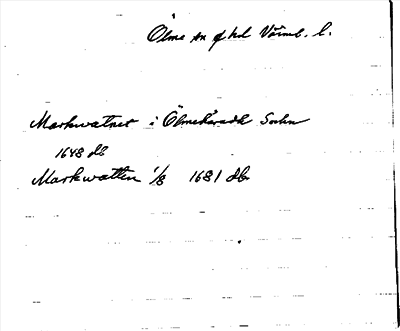 Ölme sn o hd Värml. l.
Markwatnet i Ölmehäradh Sochn
1648 db
Markwatten 1/8 1681 db